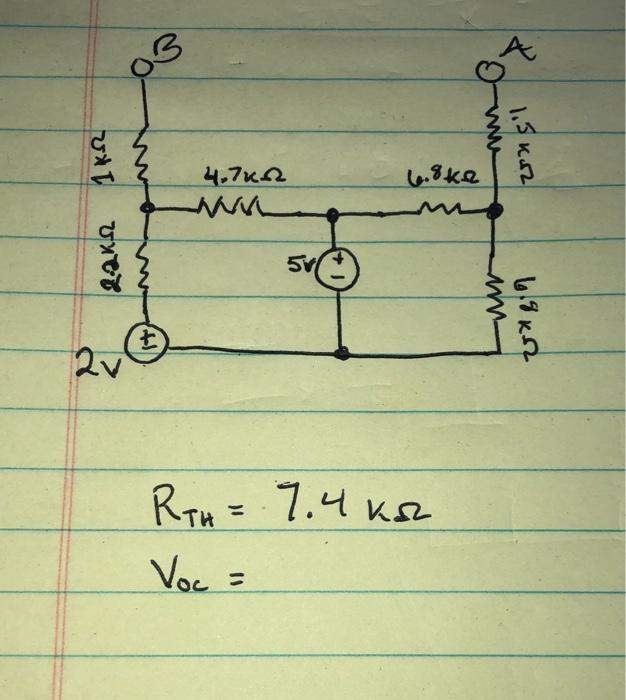 B
A
1kΩ
1.5 kΩ
4.7kΩ
6.8kΩ
2.2kΩ
5v
+
-
6.8 kΩ
±
2v
RTH = 7.4 kΩ
Voc =